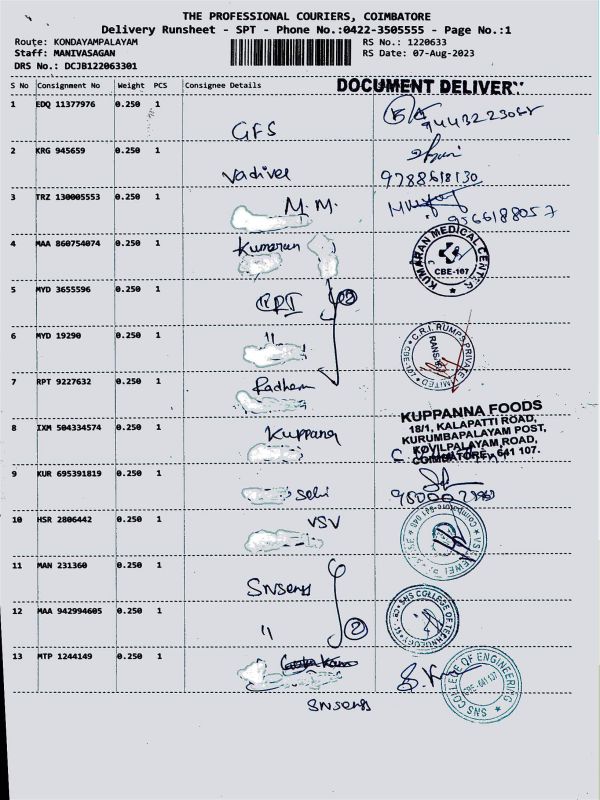 THE PROFESSIONAL COURIERS, COIMBATORE
Delivery Runsheet - SPT - Phone No.:0422-3505555 - Page No.:1
Route: KONDAYAMPALAYAM RS No.: 1220633
Staff: MANIVASAGAN RS Date: 07-Aug-2023
DRS No.: DCJB122063301
S No Consignment No Weight PCS Consignee Details DOCUMENT DELIVER
1 EDQ 11377976 0.250 1 GFS
2 KRG 945659 0.250 1 Vadivel 9788618130
3 TRZ 130005553 0.250 1 M.M. 9566188057
4 MAA 860754074 0.250 1 Kumaran KUMARAN MEDICAL CENTER CBE-107
5 MYD 3655596 0.250 1 CRI 2
6 MYD 19290 0.250 1 " C.R.I. PUMPS PRIVATE LIMITED
7 RPT 9227632 0.250 1 Radham
8 IXM 504334574 0.250 1 Kuppana KUPPANNA FOODS
18/1, KALAPATTI ROAD,
KURUMBAPALAYAM POST,
KOVILPALAYAM ROAD,
COIMBATORE - 641 107.
9 KUR 695391819 0.250 1 Selvi
10 HSR 2806442 0.250 1 VSV
11 MAN 231360 0.250 1 SNSeng
12 MAA 942994605 0.250 1 " 2 SNS COLLEGE OF TECHNOLOGY
13 MTP 1244149 0.250 1 SNS COLLEGE OF ENGINEERING CBE-641 107
SNSeng